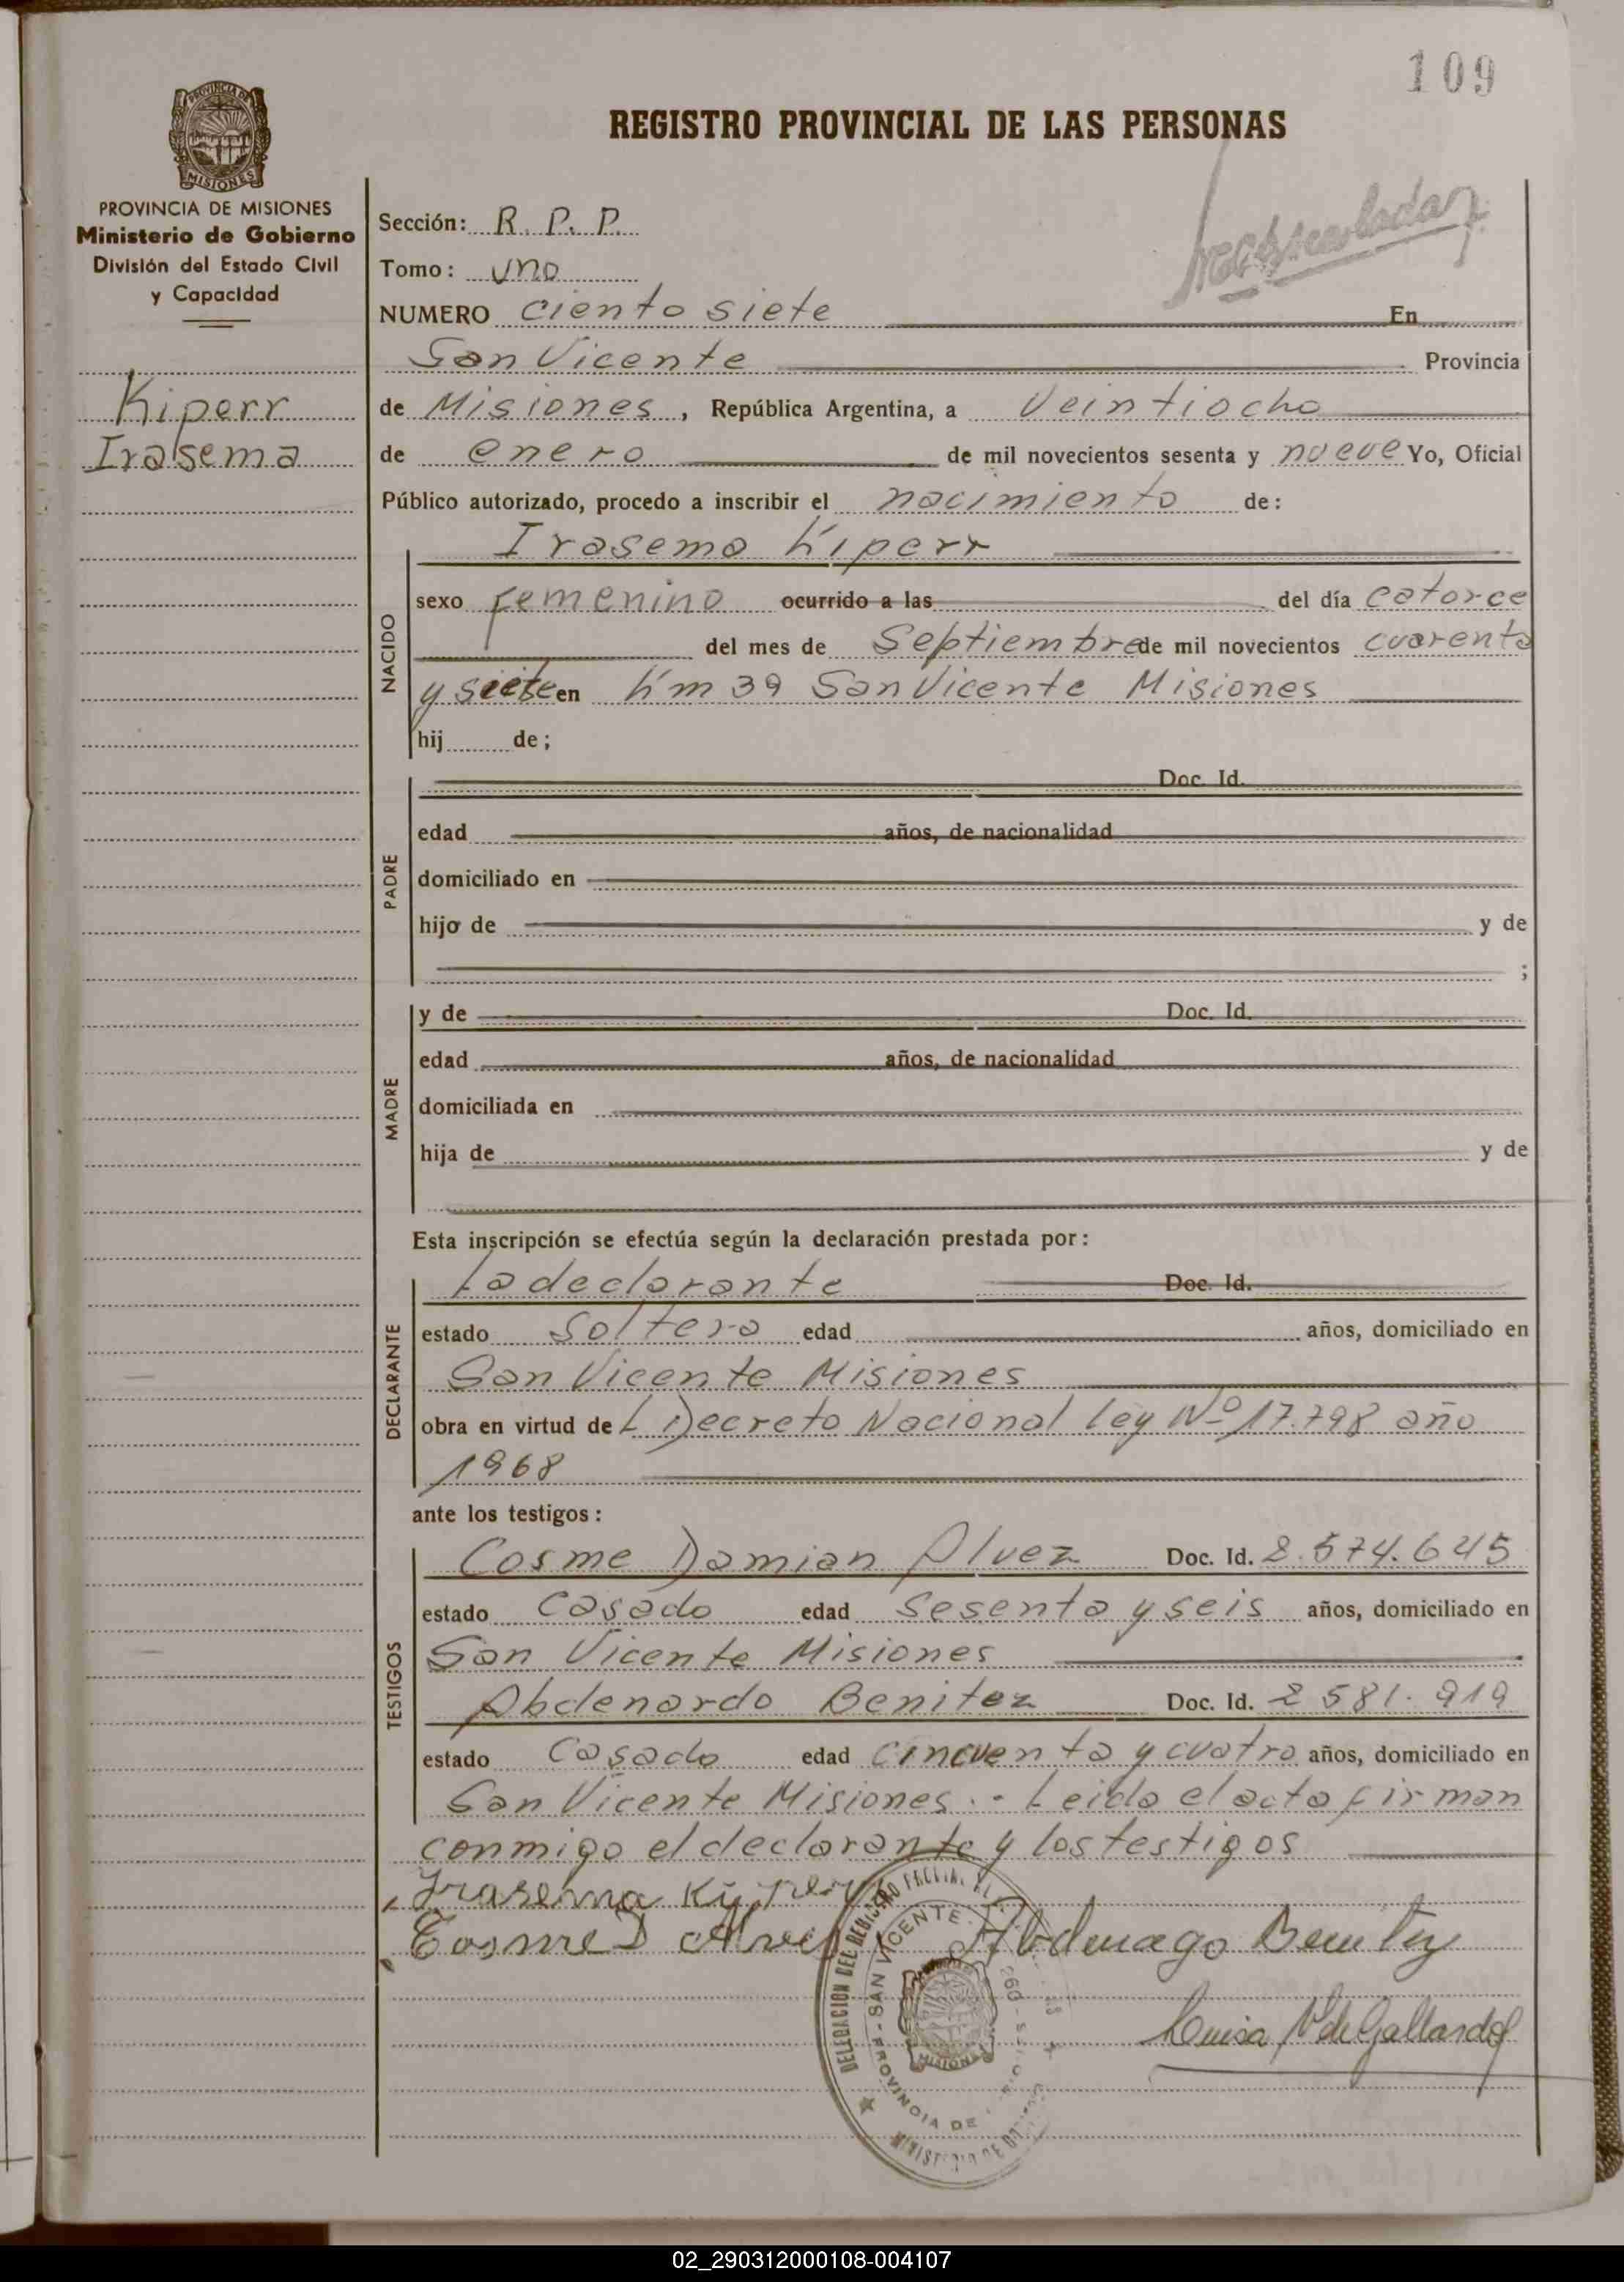 109
REGISTRO PROVINCIAL DE LAS PERSONAS
PROVINCIA DE MISIONES
MISIONES
PROVINCIA DE MISIONES
Ministerio de Gobierno
División del Estado Civil
y Capacidad
Kiperr
Irasema
Sección: R. P. P.
Tomo: uno
NUMERO ciento siete En
San Vicente Provincia
de Misiones, República Argentina, a veintiocho
de enero de mil novecientos sesenta y nueve Yo, Oficial
Público autorizado, procedo a inscribir el nacimiento de:
NACIDO
Irasema Kiperr
sexo femenino ocurrido a las del día catorce
del mes de Septiembre de mil novecientos cuarenta
y siete en Km 39 San Vicente Misiones
hij de;
PADRE
Doc. Id.
edad años, de nacionalidad
domiciliado en
hijo de y de
;
MADRE
y de Doc. Id.
edad años, de nacionalidad
domiciliada en
hija de y de
Esta inscripción se efectúa según la declaración prestada por:
DECLARANTE
La declarante Doc. Id.
estado Soltera edad años, domiciliado en
San Vicente Misiones
obra en virtud del Decreto Nacional Ley Nº 17.798 año
1968
ante los testigos:
TESTIGOS
Cosme Damian Alvez Doc. Id. 2.574.645
estado Casado edad Sesenta y seis años, domiciliado en
San Vicente Misiones
Abdenardo Benitez Doc. Id. 2 581. 919
estado Casado edad cincuenta y cuatro años, domiciliado en
San Vicente Misiones.- Leida el acta firman
conmigo el declarante y los testigos
Irasema
Cosme D Alvez Abdenago Benitez
Luisa V de Gallardo
DELEGACION DEL REGISTRO
SAN VICENTE
PROVINCIA DE
MISIONES
02_290312000108-004107